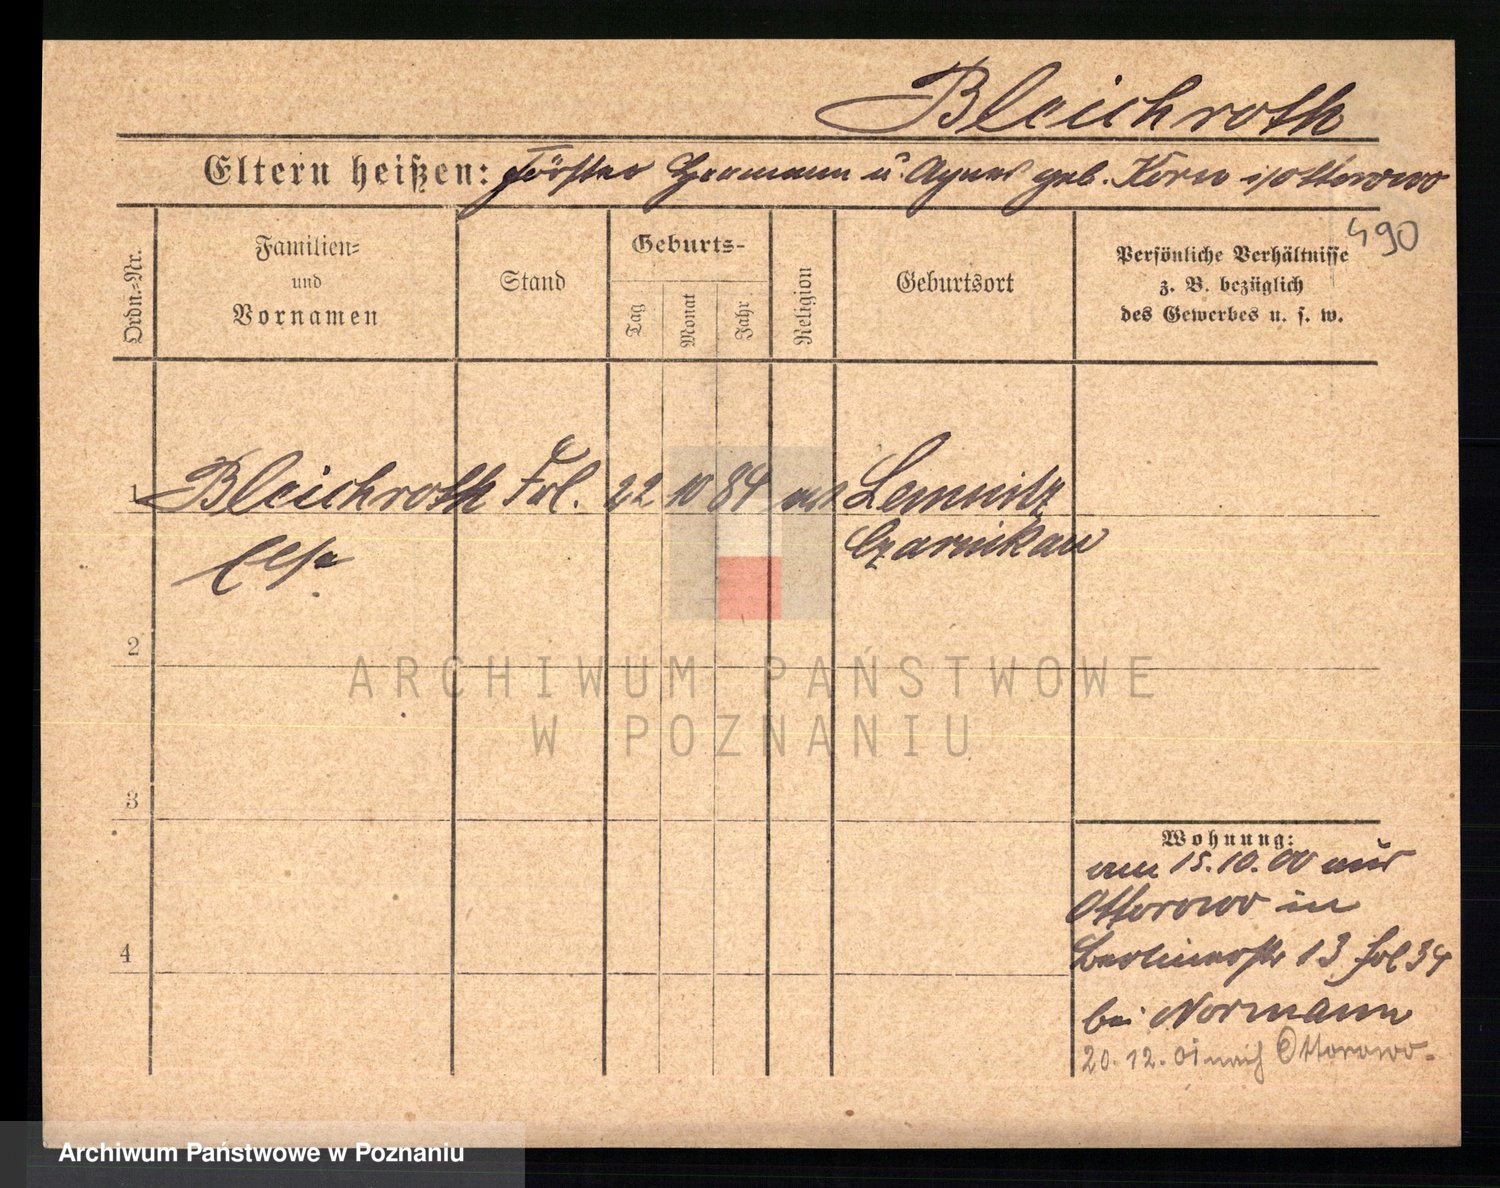 Bleichroth
Eltern heißen: Förster Hermann u. Agnes geb. Korn i/Ottorowo
490
Ordn.-Nr.
Familien-
und
Vornamen
Stand
Geburts-
Tag
Monat
Jahr
Religion
Geburtsort
Persönliche Verhältnisse
z. B. bezüglich
des Gewerbes u. s. w.
1 Bleichroth Frl. 22 10 84 Lemnitz
Else Czarnikau
2
3
4
Wohnung:
am 15.10.00 aus
Ottorowo in
Berlinerstr 13 fol 34
bei Normann
20.12.01 nach Ottorowo.
ARCHIWUM PAŃSTWOWE
W POZNANIU
Archiwum Państwowe w Poznaniu